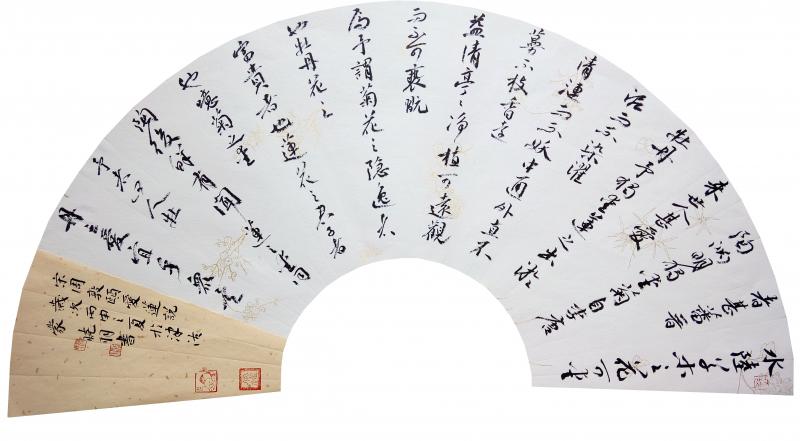 水陸草木之花可愛
者甚蕃晉
陶淵明獨愛菊自李唐
来世人甚愛
牡丹予獨愛蓮之出淤
泥而不染濯
清漣而不妖中通外直不
蔓不枝香遠
益清亭々淨植可遠觀
而不可褻翫
焉予謂菊花之隐逸者
也牡丹花之
富貴者也蓮花之君子者
也噫菊之愛
陶後鮮有聞蓮之愛同
予者何人牡
丹之愛宜乎衆矣
宋周敦頤愛蓮說
歲次丙申之夏於津沽